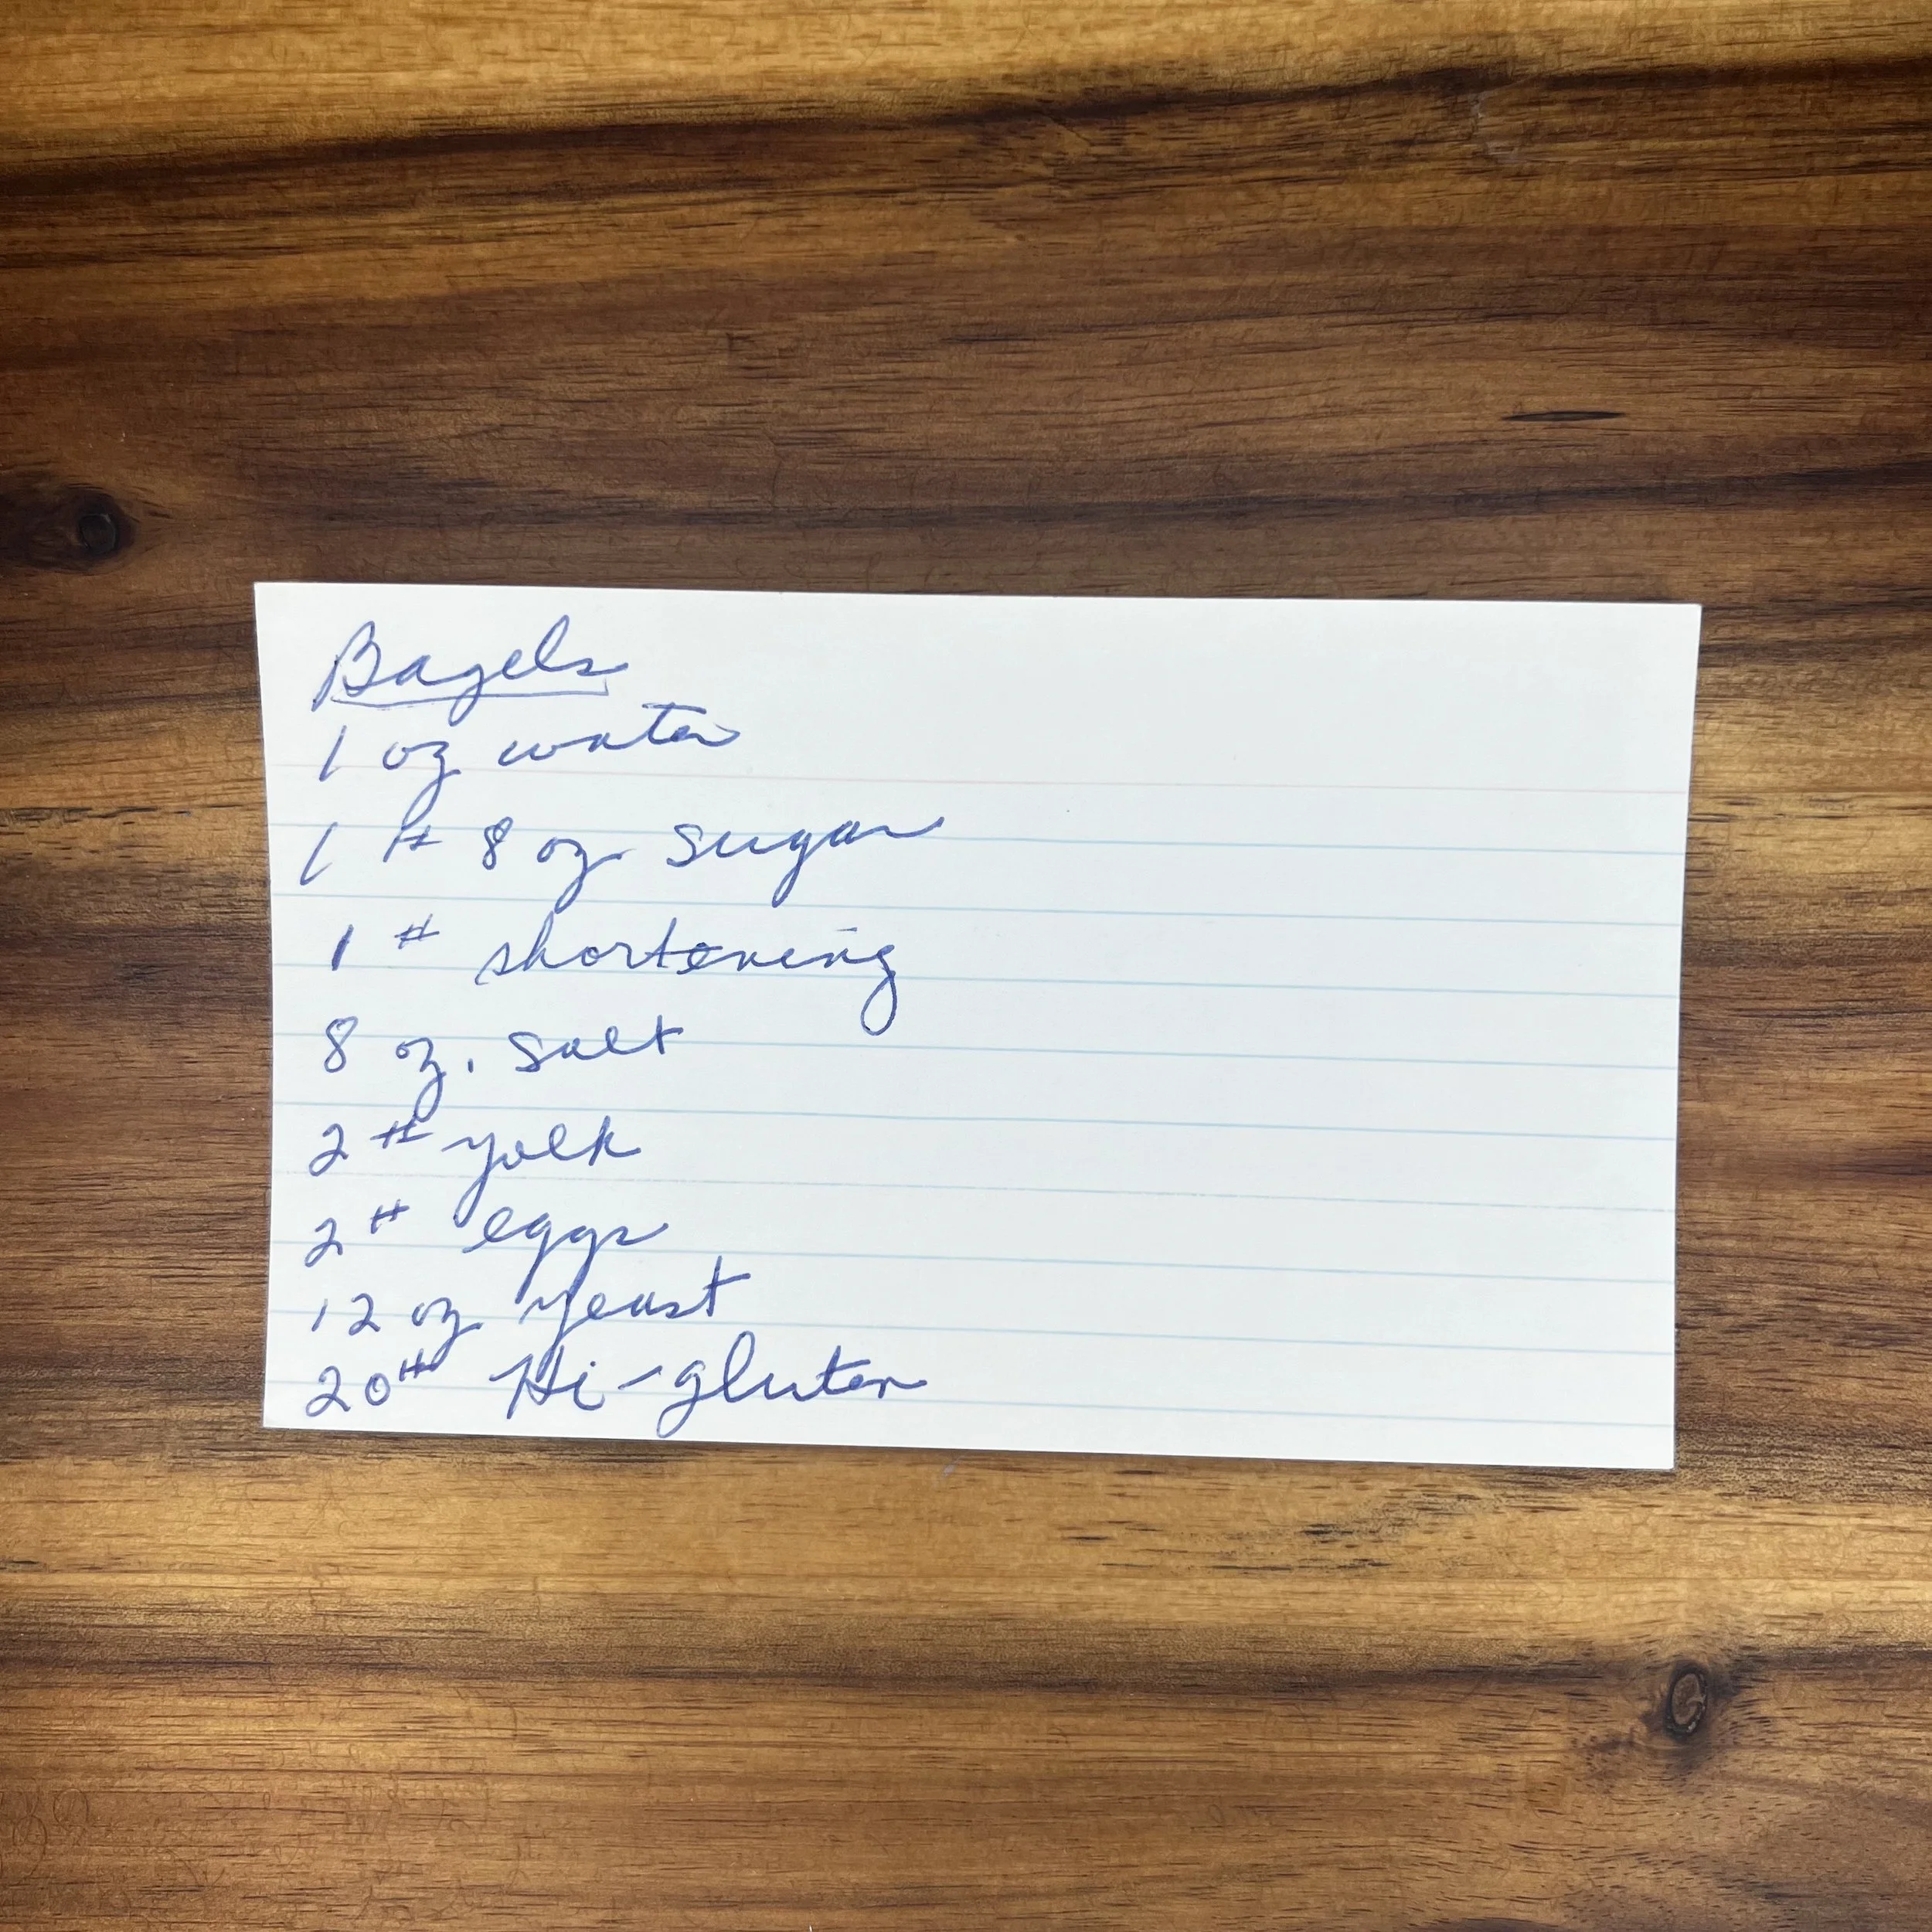 Bagels
1 oz water
1 # 8 oz. sugar
1 # shortening
8 oz. salt
2 # yolk
2 # eggs
12 oz yeast
20 # Hi-gluten